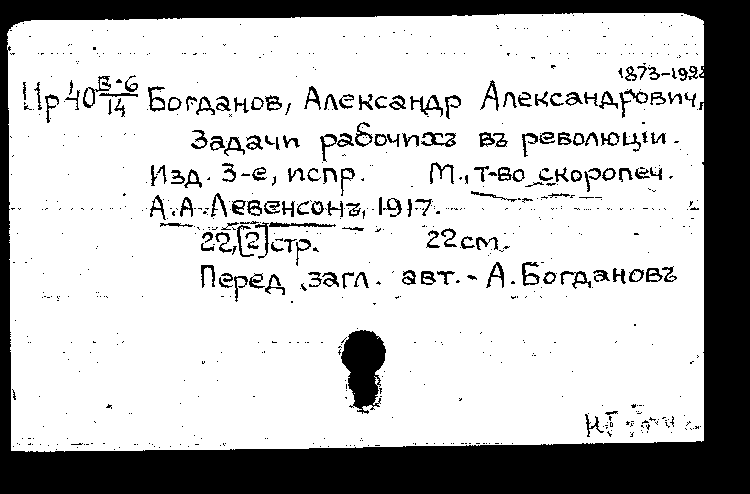 1873-1928
Цр 40 В-6/14 Богданов, Александр Александрович,
Задачи рабочихъ въ революцiи.
Изд. 3-е, испр. М., т-во скоропеч.
А.А.Левенсонъ, 1917.
22,[2]стр. 22см.
Перед загл. авт.- А.Богдановъ